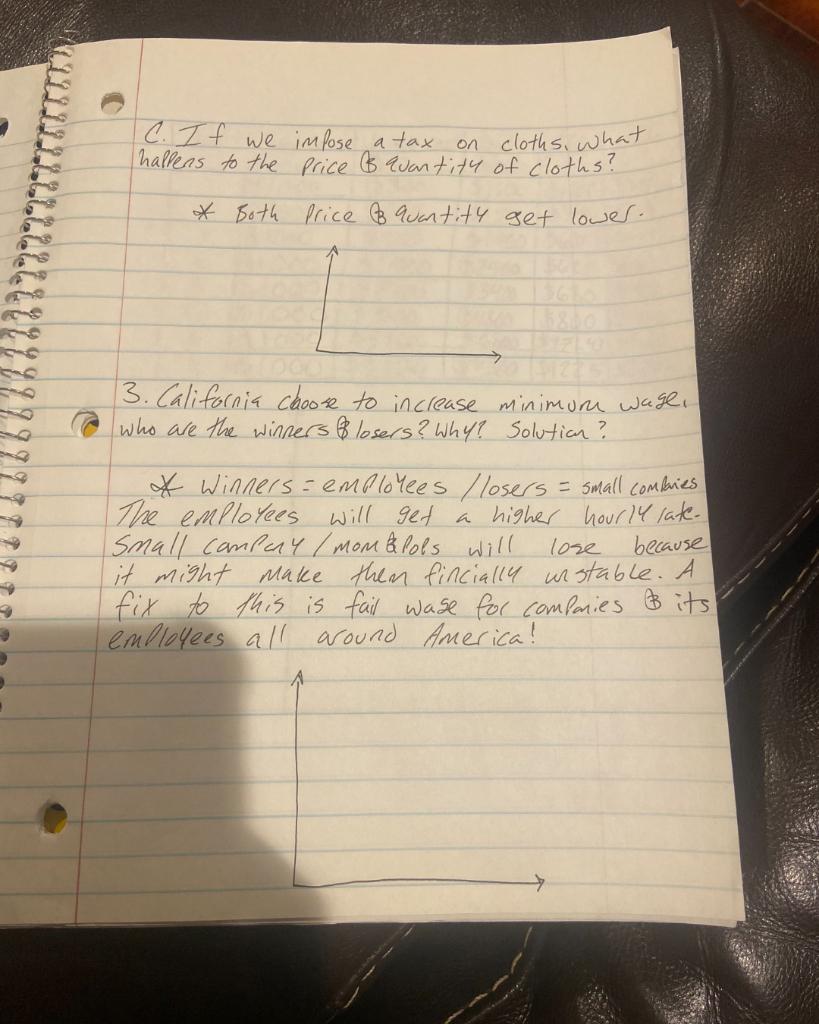 C. If we impose a tax on cloths, what
happens to the price & quantity of cloths?
* Both Price & quantity get lower.
3. California choose to increase minimum wage,
who are the winners & losers? Why? Solution?
* Winners = employees / losers = small companies
The employees will get a higher hourly rate.
Small company / mom & pops will lose because
it might make them fincially unstable. A
fix to this is fair wage for companies & its
employees all around America!